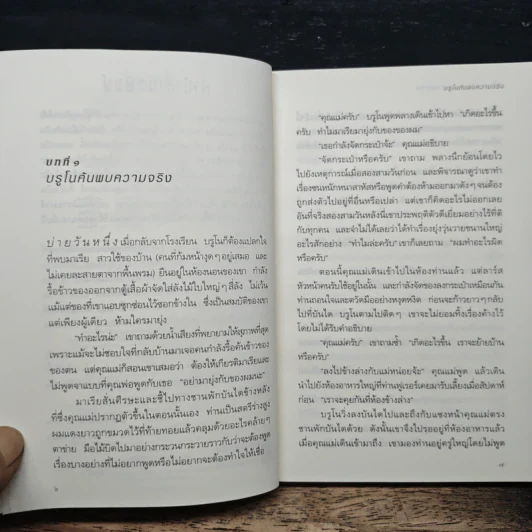 บทที่ ๑
บรูโนค้นพบความจริง
บ่ายวันหนึ่งเมื่อกลับจากโรงเรียน บรูโนก็ต้องแปลกใจ
ที่พบมาเรีย สาวใช้ของบ้าน (คนที่ก้มหน้างุดๆอยู่เสมอ และ
ไม่เคยละสายตาจากพื้นพรม) ยืนอยู่ในห้องนอนของเขา กำลัง
รื้อข้าวของออกจากตู้เสื้อผ้าจัดใส่ลังไม้ใบใหญ่ๆสี่ลัง ไม่เว้น
แม้แต่ของที่เขาแอบซุกซ่อนไว้ซอกข้างใน ซึ่งเป็นสมบัติของเขา
แต่เพียงผู้เดียว ห้ามใครมายุ่ง
"ทำอะไรน่ะ" เขาถามด้วยน้ำเสียงที่พยายามให้สุภาพที่สุด
เพราะแม้จะไม่ชอบใจที่กลับบ้านมาเจอคนกำลังรื้อค้นข้าวของ
ของตน แต่คุณแม่ก็สอนเขาเสมอว่า ต้องให้เกียรติมาเรียและ
ไม่พูดจาแบบที่คุณพ่อพูดกับเธอ "อย่ามายุ่งกับของผมนะ"
มาเรียสั่นศีรษะและชี้ไปทางชานพักบันไดข้างหลัง
ที่ซึ่งคุณแม่ปรากฏตัวขึ้นในตอนนั้นเอง ท่านเป็นสตรีร่างสูง
ผมแดงยาวถูกขมวดไว้ที่ท้ายทอยแล้วคลุมด้วยอะไรคล้ายๆ
ตาข่าย มือไม้บิดไปมาอย่างกระวนกระวายราวกับว่าจะต้องพูด
เรื่องบางอย่างที่ไม่อยากพูดหรือไม่อยากจะต้องทำใจให้เชื่อ
"คุณแม่ครับ" บรูโนพูดพลางเดินเข้าไปหา "เกิดอะไรขึ้น
ครับ ทำไมมาเรียมายุ่งกับของของผม"
"เธอกำลังจัดกระเป๋าจ้ะ" คุณแม่อธิบาย
"จัดกระเป๋าหรือครับ" เขาถาม พลางนึกย้อนโดยไว
ไปยังเหตุการณ์เมื่อสองสามวันก่อน และพิจารณาดูว่าเขาทำ
เรื่องซนหนักหนาสาหัสหรือพูดคำต้องห้ามออกมาดังๆจนต้อง
ถูกส่งตัวไปอยู่ที่อื่นหรือเปล่า แต่เขาก็คิดอะไรไม่ออกเลย
อันที่จริงสองสามวันหลังนี้เขาประพฤติตัวดีเยี่ยมอย่างไร้ที่ติ
กับทุกคน และจำไม่ได้เลยว่าได้ทำเรื่องยุ่งวุ่นวายขนานใหญ่
อะไรสักอย่าง "ทำไมล่ะครับ" เขาก็เลยถาม "ผมทำอะไรผิด
หรือครับ"
ตอนนี้คุณแม่เดินเข้าไปในห้องท่านแล้ว แต่ลาร์ส
หัวหน้าคนรับใช้อยู่ในนั้น และกำลังจัดของลงกระเป๋าเหมือนกัน
ท่านถอนใจและตวัดมืออย่างหงุดหงิด ก่อนจะก้าวยาวๆกลับ
ไปที่บันได บรูโนตามไปติดๆ เขาจะไม่ยอมทิ้งเรื่องค้างไว้
โดยไม่ได้รับคำอธิบาย
"คุณแม่ครับ" เขาถามซ้ำ "เกิดอะไรขึ้น เราจะย้ายบ้าน
หรือครับ"
"ลงไปข้างล่างกับแม่หน่อยจ้ะ" คุณแม่พูด แล้วเดิน
นำไปยังห้องอาหารใหญ่ที่ท่านฟูเรอร์เคยมารับเลี้ยงเมื่อสัปดาห์
ก่อน "เราจะคุยกันที่ห้องข้างล่าง"
บรูโนวิ่งลงบันไดไปและถึงกับแซงหน้าคุณแม่ตรง
ชานพักบันไดด้วย ดังนั้นเขาจึงไปรออยู่ที่ห้องอาหารแล้ว
เมื่อคุณแม่เดินเข้ามาถึง เขามองท่านอยู่ครู่ใหญ่โดยไม่พูด